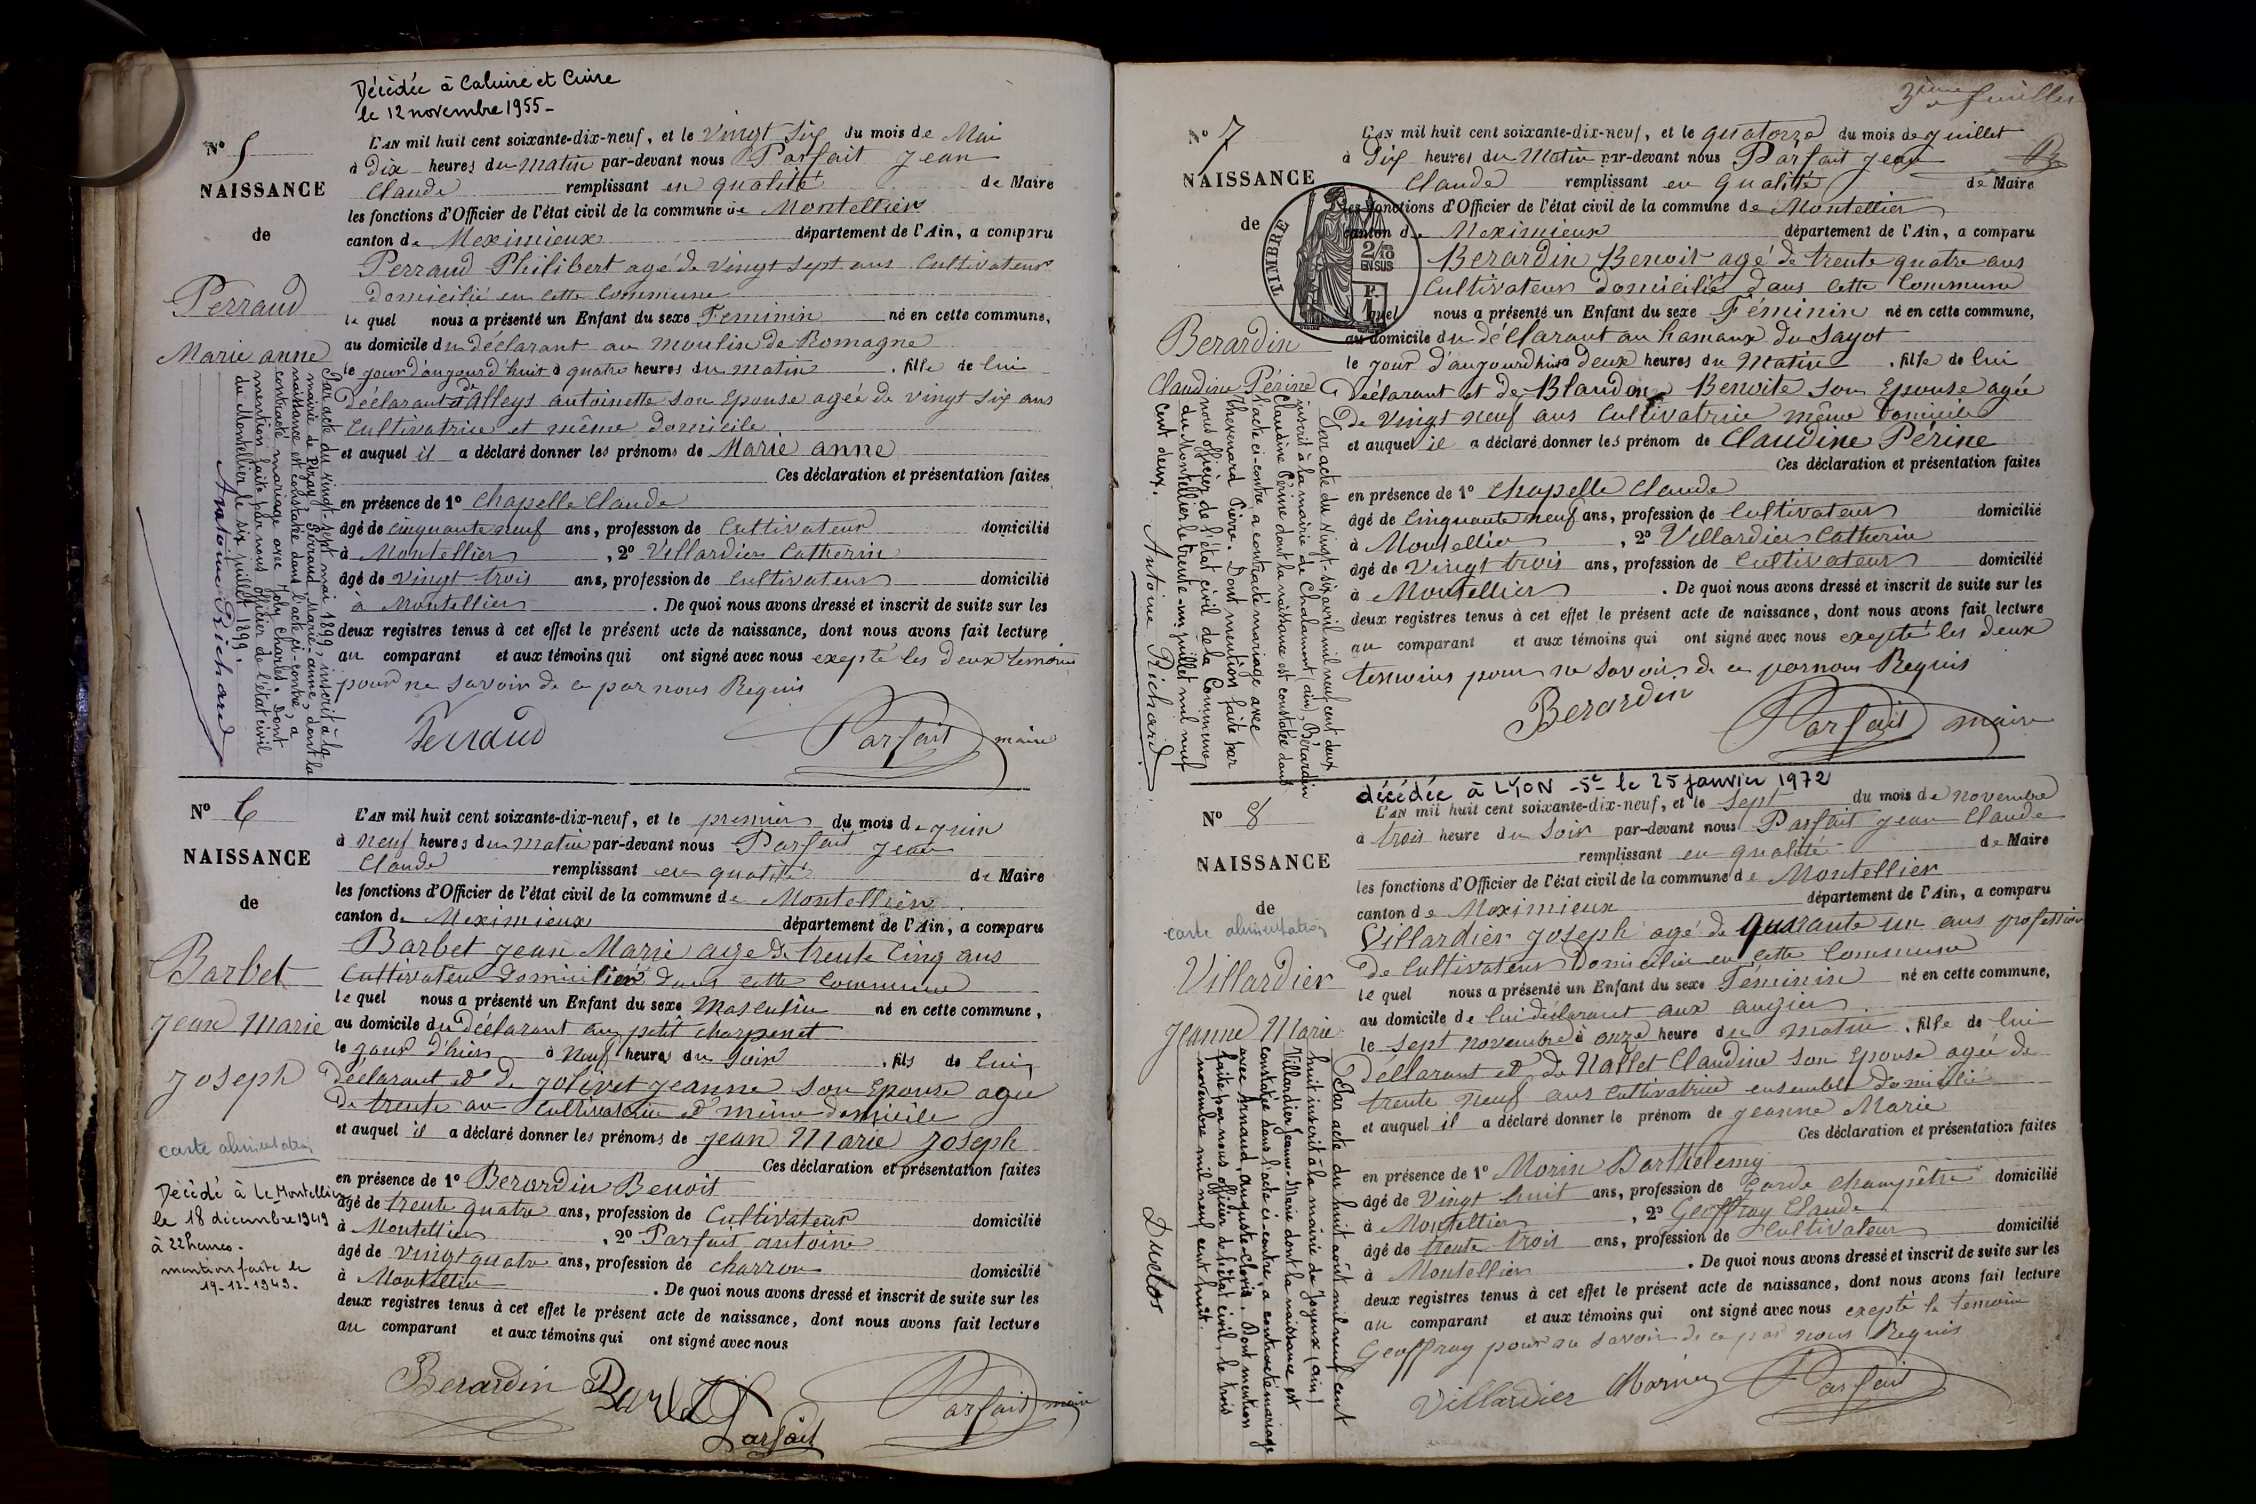 Décédée à Caluire et Cuire
le 12 novembre 1955 -
N° 5
NAISSANCE
de
Perraud
Marie anne
L'AN mil huit cent soixante-dix-neuf, et le vingt six du mois de Mai
à Dix heures du Matin par-devant nous Parfait Jean
Claude remplissant en qualité de Maire
les fonctions d'Officier de l'état civil de la commune de Montellier
canton de Meximieux département de l'Ain, a comparu
Perraud Philibert agé de vingt sept ans Cultivateur
domicilié en cette Commune
le quel nous a présenté un Enfant du sexe Feminin né en cette commune,
au domicile du déclarant au moulin de Romagne
le jour d'aujourd'huit à quatre heures du matin , fille de lui
Déclarant et de Alleys antoinette son Epouse agée de vingt six ans
Cultivatrice et même domicile
et auquel il a déclaré donner les prénoms de Marie anne
Ces déclaration et présentation faites
en présence de 1° Chapelle Claude
âgé de Cinquante neuf ans, profession de Cultivateur domicilié
à Montellier , 2° Villardier Catherin
âgé de vingt trois ans, profession de Cultivateur domicilié
à Montellier . De quoi nous avons dressé et inscrit de suite sur les
deux registres tenus à cet effet le présent acte de naissance, dont nous avons fait lecture
au comparant et aux témoins qui ont signé avec nous exepté les deux temoins
pour ne savoir de ce par nous Requis
Perraud Parfait maire
Par acte du vingt-sept mai 1899, inscrit à la
mairie de Pizay, Perraud, Marie-anne, dont la
naissance est constatée dans l'acte ci-contre, a
contracté mariage avec Joly, Charles. Dont
mention faite par nous officier de l'état civil
du Montellier le six juillet 1899.
Antoine Richard
N° 6
NAISSANCE
de
Barbet
Jean Marie
Joseph
carte alimentation
Décédé à Le Montellier
le 18 décembre 1949
à 22 heures.
mention faite le
19-12-1949.
L'AN mil huit cent soixante-dix-neuf, et le premier du mois de Juin
à neuf heures du matin par-devant nous Parfait Jean
Claude remplissant en qualité de Maire
les fonctions d'Officier de l'état civil de la commune de Montellier
canton de Meximieux département de l'Ain, a comparu
Barbet Jean Marie age de trente Cinq ans
Cultivateur domicilier dans cette Commune
le quel nous a présenté un Enfant du sexe Masculin né en cette commune,
au domicile du Déclarant au petit charpenet
le jour d'hier à neuf heures du soir , fils de lui
Déclarant et de Jolivet Jeanne son Epouse agée
De trente an Cultivatrice et même domicile
et auquel il a déclaré donner les prénoms de Jean Marie Joseph
Ces déclaration et présentation faites
en présence de 1° Berardin Benoit
âgé de trente quatre ans, profession de Cultivateur domicilié
à Montellier , 2° Parfait antoine
âgé de vingt quatre ans, profession de charron domicilié
à Montellier . De quoi nous avons dressé et inscrit de suite sur les
deux registres tenus à cet effet le présent acte de naissance, dont nous avons fait lecture
au comparant et aux témoins qui ont signé avec nous
Berardin Barbet Parfait maire
Parfait
3ième feuillet
N° 7
NAISSANCE
de
TIMBRE
2/10
EN SUS
Berardin
Claudine Périne
L'AN mil huit cent soixante-dix-neuf, et le quatorze du mois de Juillet
à Six heures du Matin par-devant nous Parfait Jean
Claude remplissant en qualité de Maire
les fonctions d'Officier de l'état civil de la commune de Montellier
canton de Meximieux département de l'Ain, a comparu
Berardin Benoit agé de trente quatre ans
Cultivateur domicilié dans cette Commune
le quel nous a présenté un Enfant du sexe Féminin né en cette commune,
au domicile du déclarant au hamaux du Sayot
le jour d'aujourdhui à deux heures du Matin , fille de lui
Déclarant et de Blandin Benoite son Epouse agée
De vingt neuf ans Cultivatrice même Domicile
et auquel il a déclaré donner les prénom de Claudine Périne
Ces déclaration et présentation faites
en présence de 1° Chapelle Claude
âgé de Cinquante neuf ans, profession de Cultivateur domicilié
à Montellier , 2° Villardier Catherin
âgé de vingt trois ans, profession de Cultivateur domicilié
à Montellier . De quoi nous avons dressé et inscrit de suite sur les
deux registres tenus à cet effet le présent acte de naissance, dont nous avons fait lecture
au comparant et aux témoins qui ont signé avec nous exepté les deux
temoins pour ne savoir de ce par nous Requis
Berardin Parfait maire
Par acte du vingt-six avril mil neuf cent deux
inscrit à la mairie de Chalamont (ain), Bérardin
Claudine Périne dont la naissance est constatée dans
l'acte ci-contre, a contracté mariage avec
Thevenard Pierre. Dont mention faite par
nous officier de l'état civil de la Commune
du Montellier le trente-un juillet mil neuf
cent deux.
Antoine Richard
N° 8
NAISSANCE
de
carte alimentation
Villardier
Jeanne Marie
décédée à LYON -5e le 25 janvier 1972
L'AN mil huit cent soixante-dix-neuf, et le sept du mois de novembre
à trois heure du Soir par-devant nous Parfait Jean Claude
remplissant en qualité de Maire
les fonctions d'Officier de l'état civil de la commune de Montellier
canton de Meximieux département de l'Ain, a comparu
Villardier Joseph agé de quarante un ans profession
De Cultivateur Domicilié en cette Commune
le quel nous a présenté un Enfant du sexe Féminin né en cette commune,
au domicile de lui déclarant aux augiers
le sept novembre à onze heure du matin , fille de lui
Déclarant et de Nallet Claudine son Epouse agée de
trente neuf ans Cultivatrice ensemble domicilié
et auquel il a déclaré donner le prénom de Jeanne Marie
Ces déclaration et présentation faites
en présence de 1° Morin Barthélemy
âgé de Vingt huit ans, profession de Garde champêtre domicilié
à Montellier , 2° Geoffray Claude
âgé de trente trois ans, profession de Cultivateur domicilié
à Montellier . De quoi nous avons dressé et inscrit de suite sur les
deux registres tenus à cet effet le présent acte de naissance, dont nous avons fait lecture
au comparant et aux témoins qui ont signé avec nous exepté le temoin
Geoffray pour ne savoir de ce par nous Requis
Villardier Morin Parfait
Par acte du huit août mil neuf cent
huit inscrit à la mairie de Joyeux (ain)
Villardier Jeanne-Marie dont la naissance est
constatée dans l'acte ci-contre, a contracté mariage
avec Arnaud, auguste-Clovis. Dont mention
faite par nous officier de l'état civil, le trois
novembre mil neuf cent huit.
Duclos